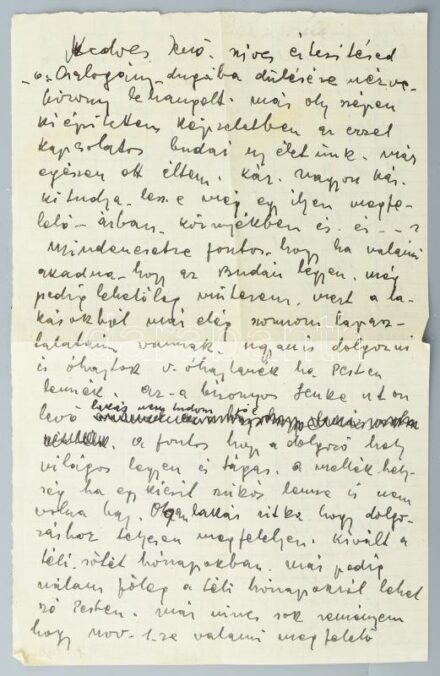 Kedves Jenő. szives értesitésed
a Csalogány dugába dülésére vezve-
bizony lehangolt. már oly szépen
kiépitettem képzeletben az ezzel
kapcsolatos budai uj életünk. már
egészen ott éltem. kár. nagyon kár.
ki tudja lesz-e még egy ilyen megfe-
lelő - árban. környékben és - és - - ?
Mindenesetre fontos. hogy ha valami
akadna - hogy az Budán legyen. még
pedig lehetőleg műterem. mert a la-
kásokból már elég szomorú tapasz-
talataim vannak. ugyanis dolgozni
is óhajtok v. óhajtanék ha Pesten
lennék. az - a bizonyos Lenke uton
levő lakás nem tudom
a fontos hogy a dolgozó hely
világos legyen és tágas. a mellék hely-
ség ha egy kicsit szükös lenne is nem
volna baj. Olyan lakás ritka hogy dolgo-
záshoz teljesen megfeleljen. kivált a
téli. sötét hónapokban. már pedig
nálam főleg a téli hónapokról lehet
szó Pesten. már nincs sok reményem
hogy nov. 1-re valami megfelelő